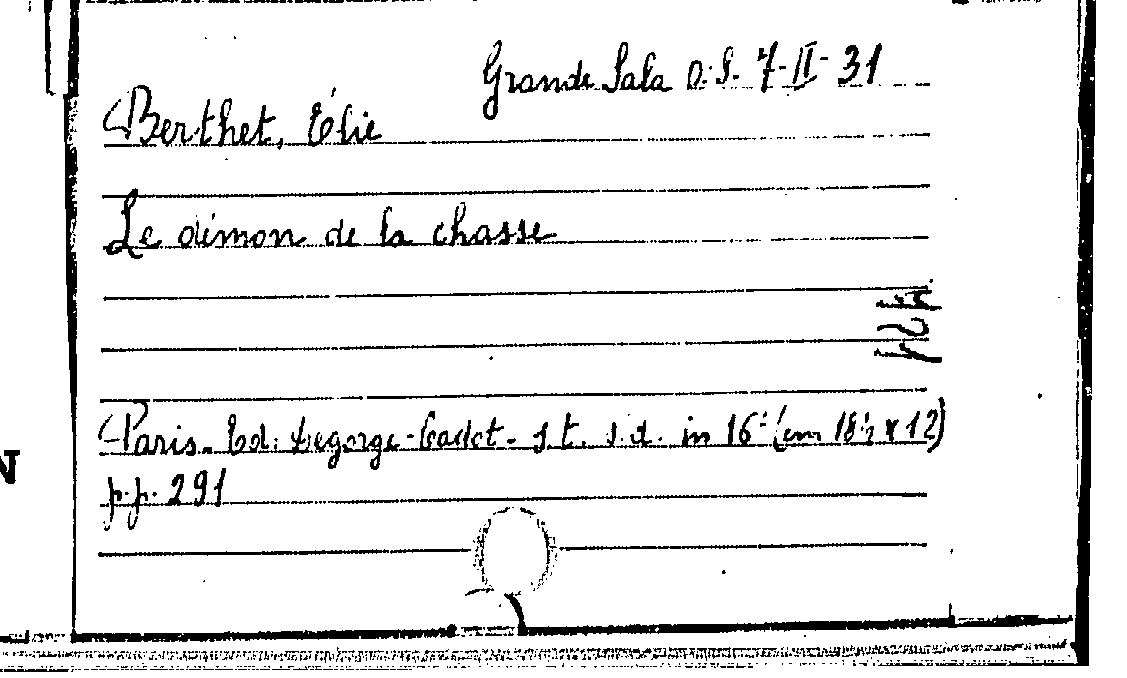 Grande Sala O.S. 7-II-31
Berthet, Élie
Le démon de la chasse
Paris. Ed. Degorge-Cadot - s.t. s.d. in 16° (cm 18½ x 12)
p.p. 291
N